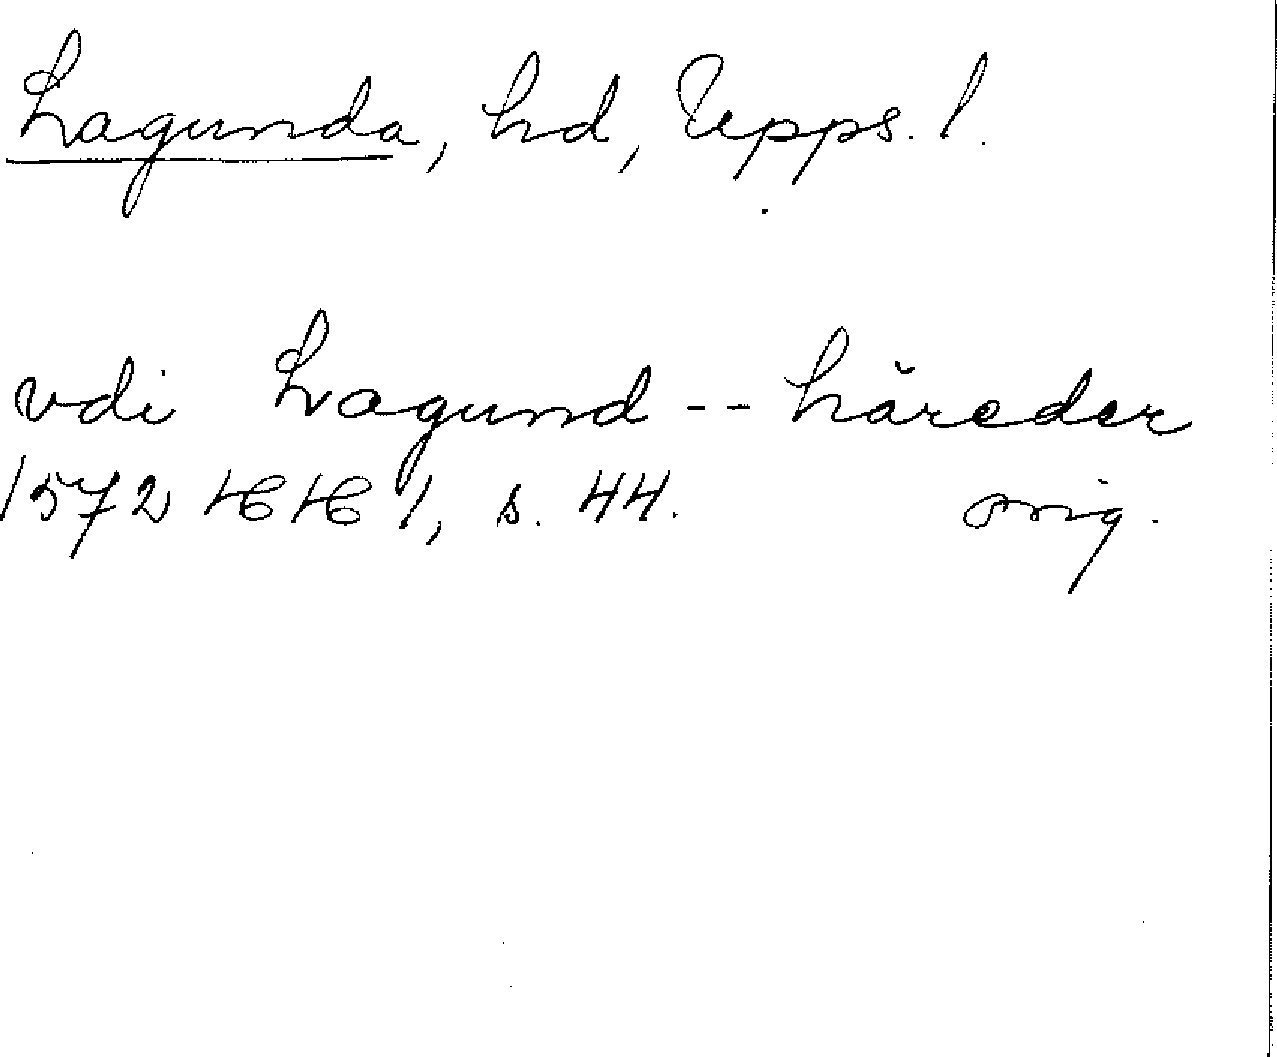 Lagunda, hd, Upps. l.
vdi Lagund -- häreder
1572 HH 1, s. 44. orig.